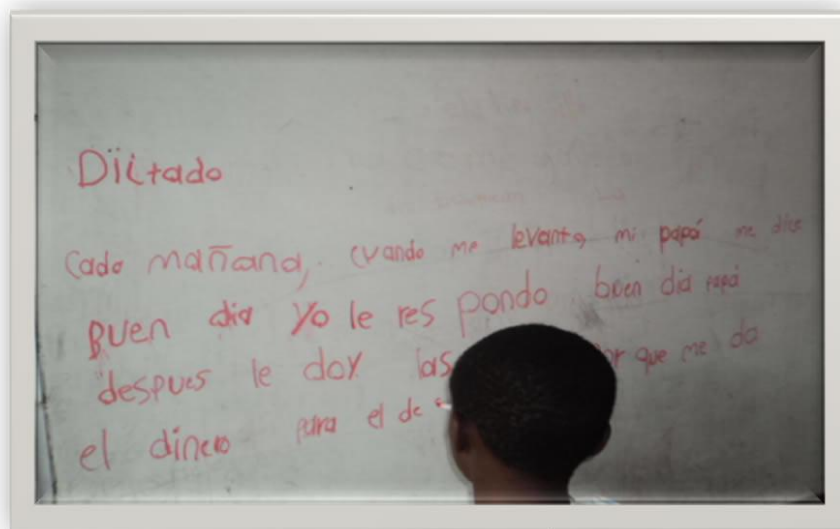 Dictado
Cada mañana, cuando me levanto, mi papá me dice
Buen dia Yo le res pondo buen dia papá
despues le doy las por que me da
el dinero para el de